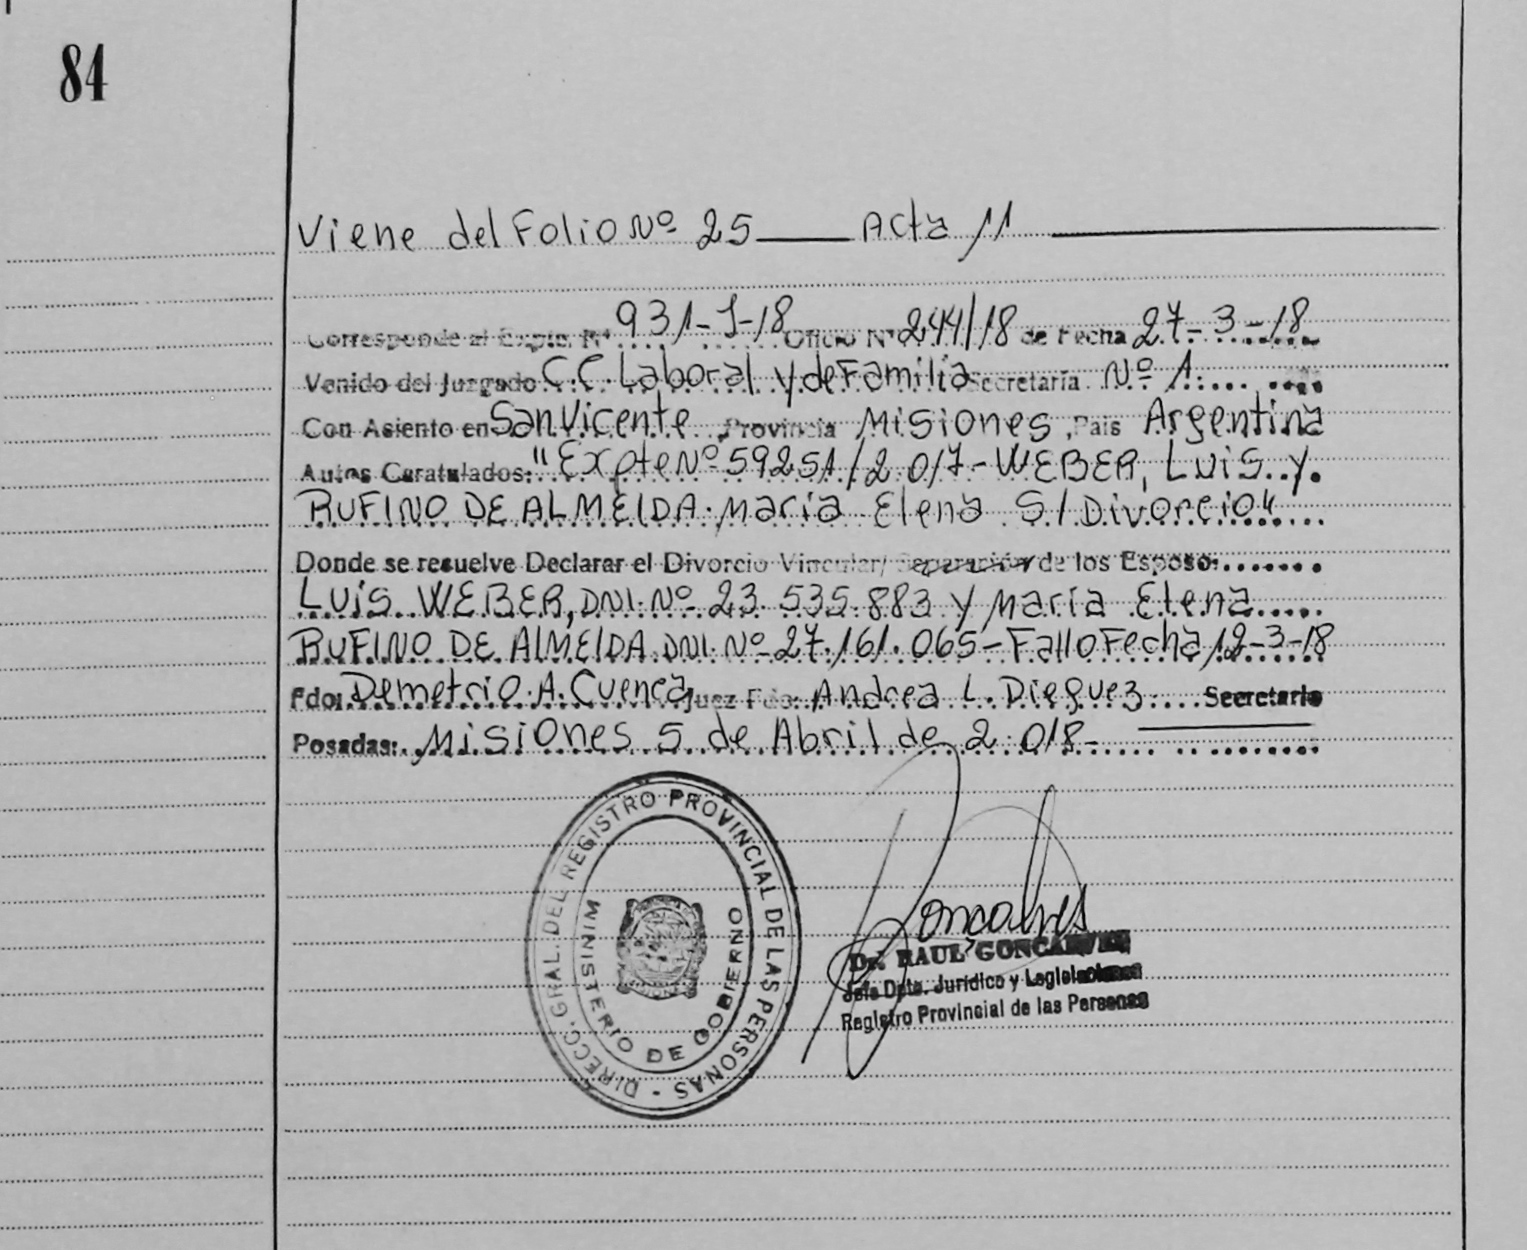 84
Viene del Folio Nº 25 Acta 11
Corresponde al Expte. Nº 931-J-18 Oficio Nº 244/18 de Fecha 27-3-18
Venido del Juzgado C.C. Laboral y de Familia Secretaría Nº 1
Con Asiento en San Vicente Provincia Misiones País Argentina
Autos Caratulados: "Expte Nº 59251/2017- WEBER, Luis y
RUFINO DE ALMEIDA María Elena S/ Divorcio"
Donde se resuelve Declarar el Divorcio Vincular/ Separación de los Esposo:
Luis WEBER, DNI. Nº 23.535.883 y María Elena
RUFINO DE ALMEIDA DNI. Nº 27.161.065- Fallo Fecha 12-3-18
Fdo: Demetrio A. Cuenca Juez Fdo: Andrea L. Dieguez Secretario
Posadas: Misiones 5 de Abril de 2018-
DIRECC. GRAL. DEL REGISTRO PROVINCIAL DE LAS PERSONAS -
MINISTERIO DE GOBIERNO
Goncalves
Dr. RAUL GONCALVES
Jefe Dpto. Jurídico y Legislaciones
Registro Provincial de las Personas